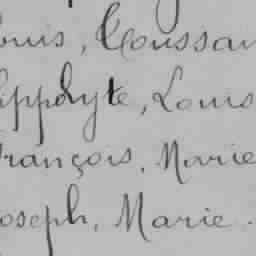 ouis, Toussain
ippolyte, Louis
rançois, Marie
oseph, Marie.